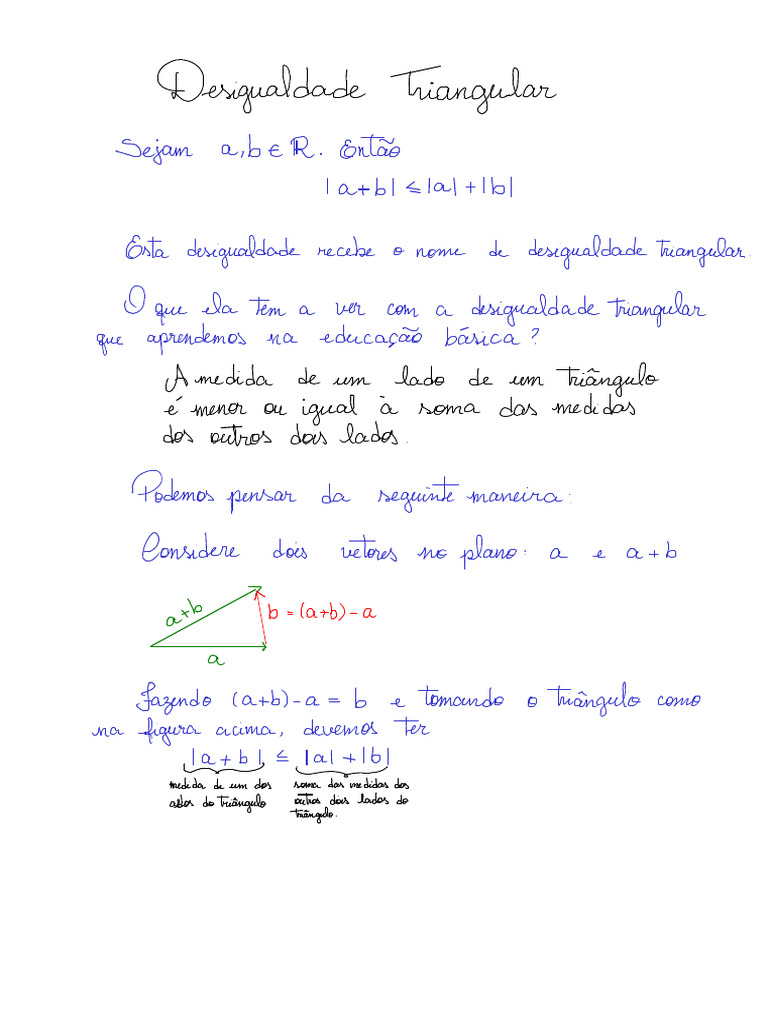 Desigualdade Triangular
Sejam a,b ∈ ℝ. Então
|a+b| ≤ |a|+|b|
Esta desigualdade recebe o nome de desigualdade triangular.
O que ela tem a ver com a desigualdade triangular
que aprendemos na educação básica?
A medida de um lado de um triângulo
é menor ou igual à soma das medidas
dos outros dois lados.
Podemos pensar da seguinte maneira:
Considere dois vetores no plano: a e a+b
a+b
b = (a+b)-a
a
Fazendo (a+b)-a = b e tomando o triângulo como
na figura acima, devemos ter
|a+b| ≤ |a|+|b|
medida de um dos
do triângulo
soma das medidas dos
outros dois lados do
triângulo.